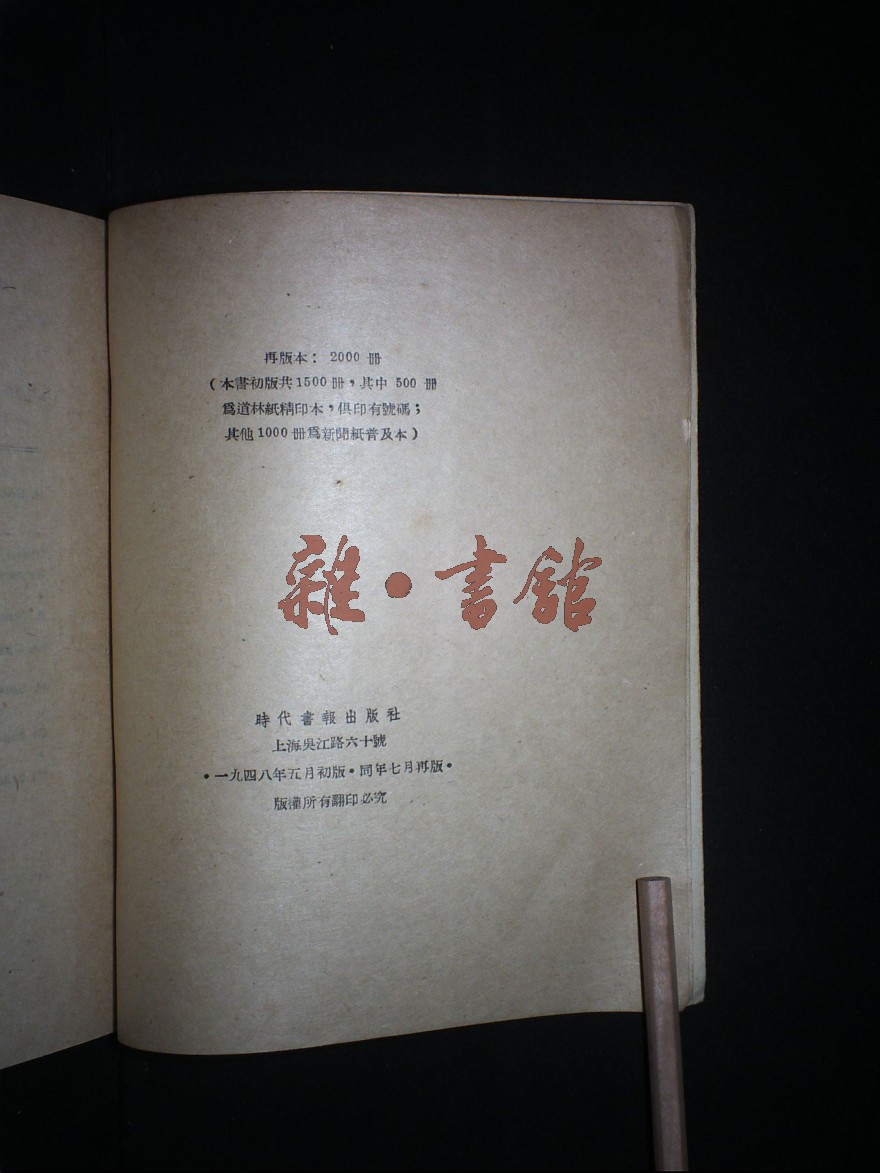 再版本：2000 册
（本書初版共1500册，其中 500 册
爲道林紙精印本，俱印有號碼；
其他1000册爲新聞紙普及本）
雜·書館
時代書報出版社
上海吳江路六十號
·一九四八年五月初版·同年七月再版·
版權所有翻印必究